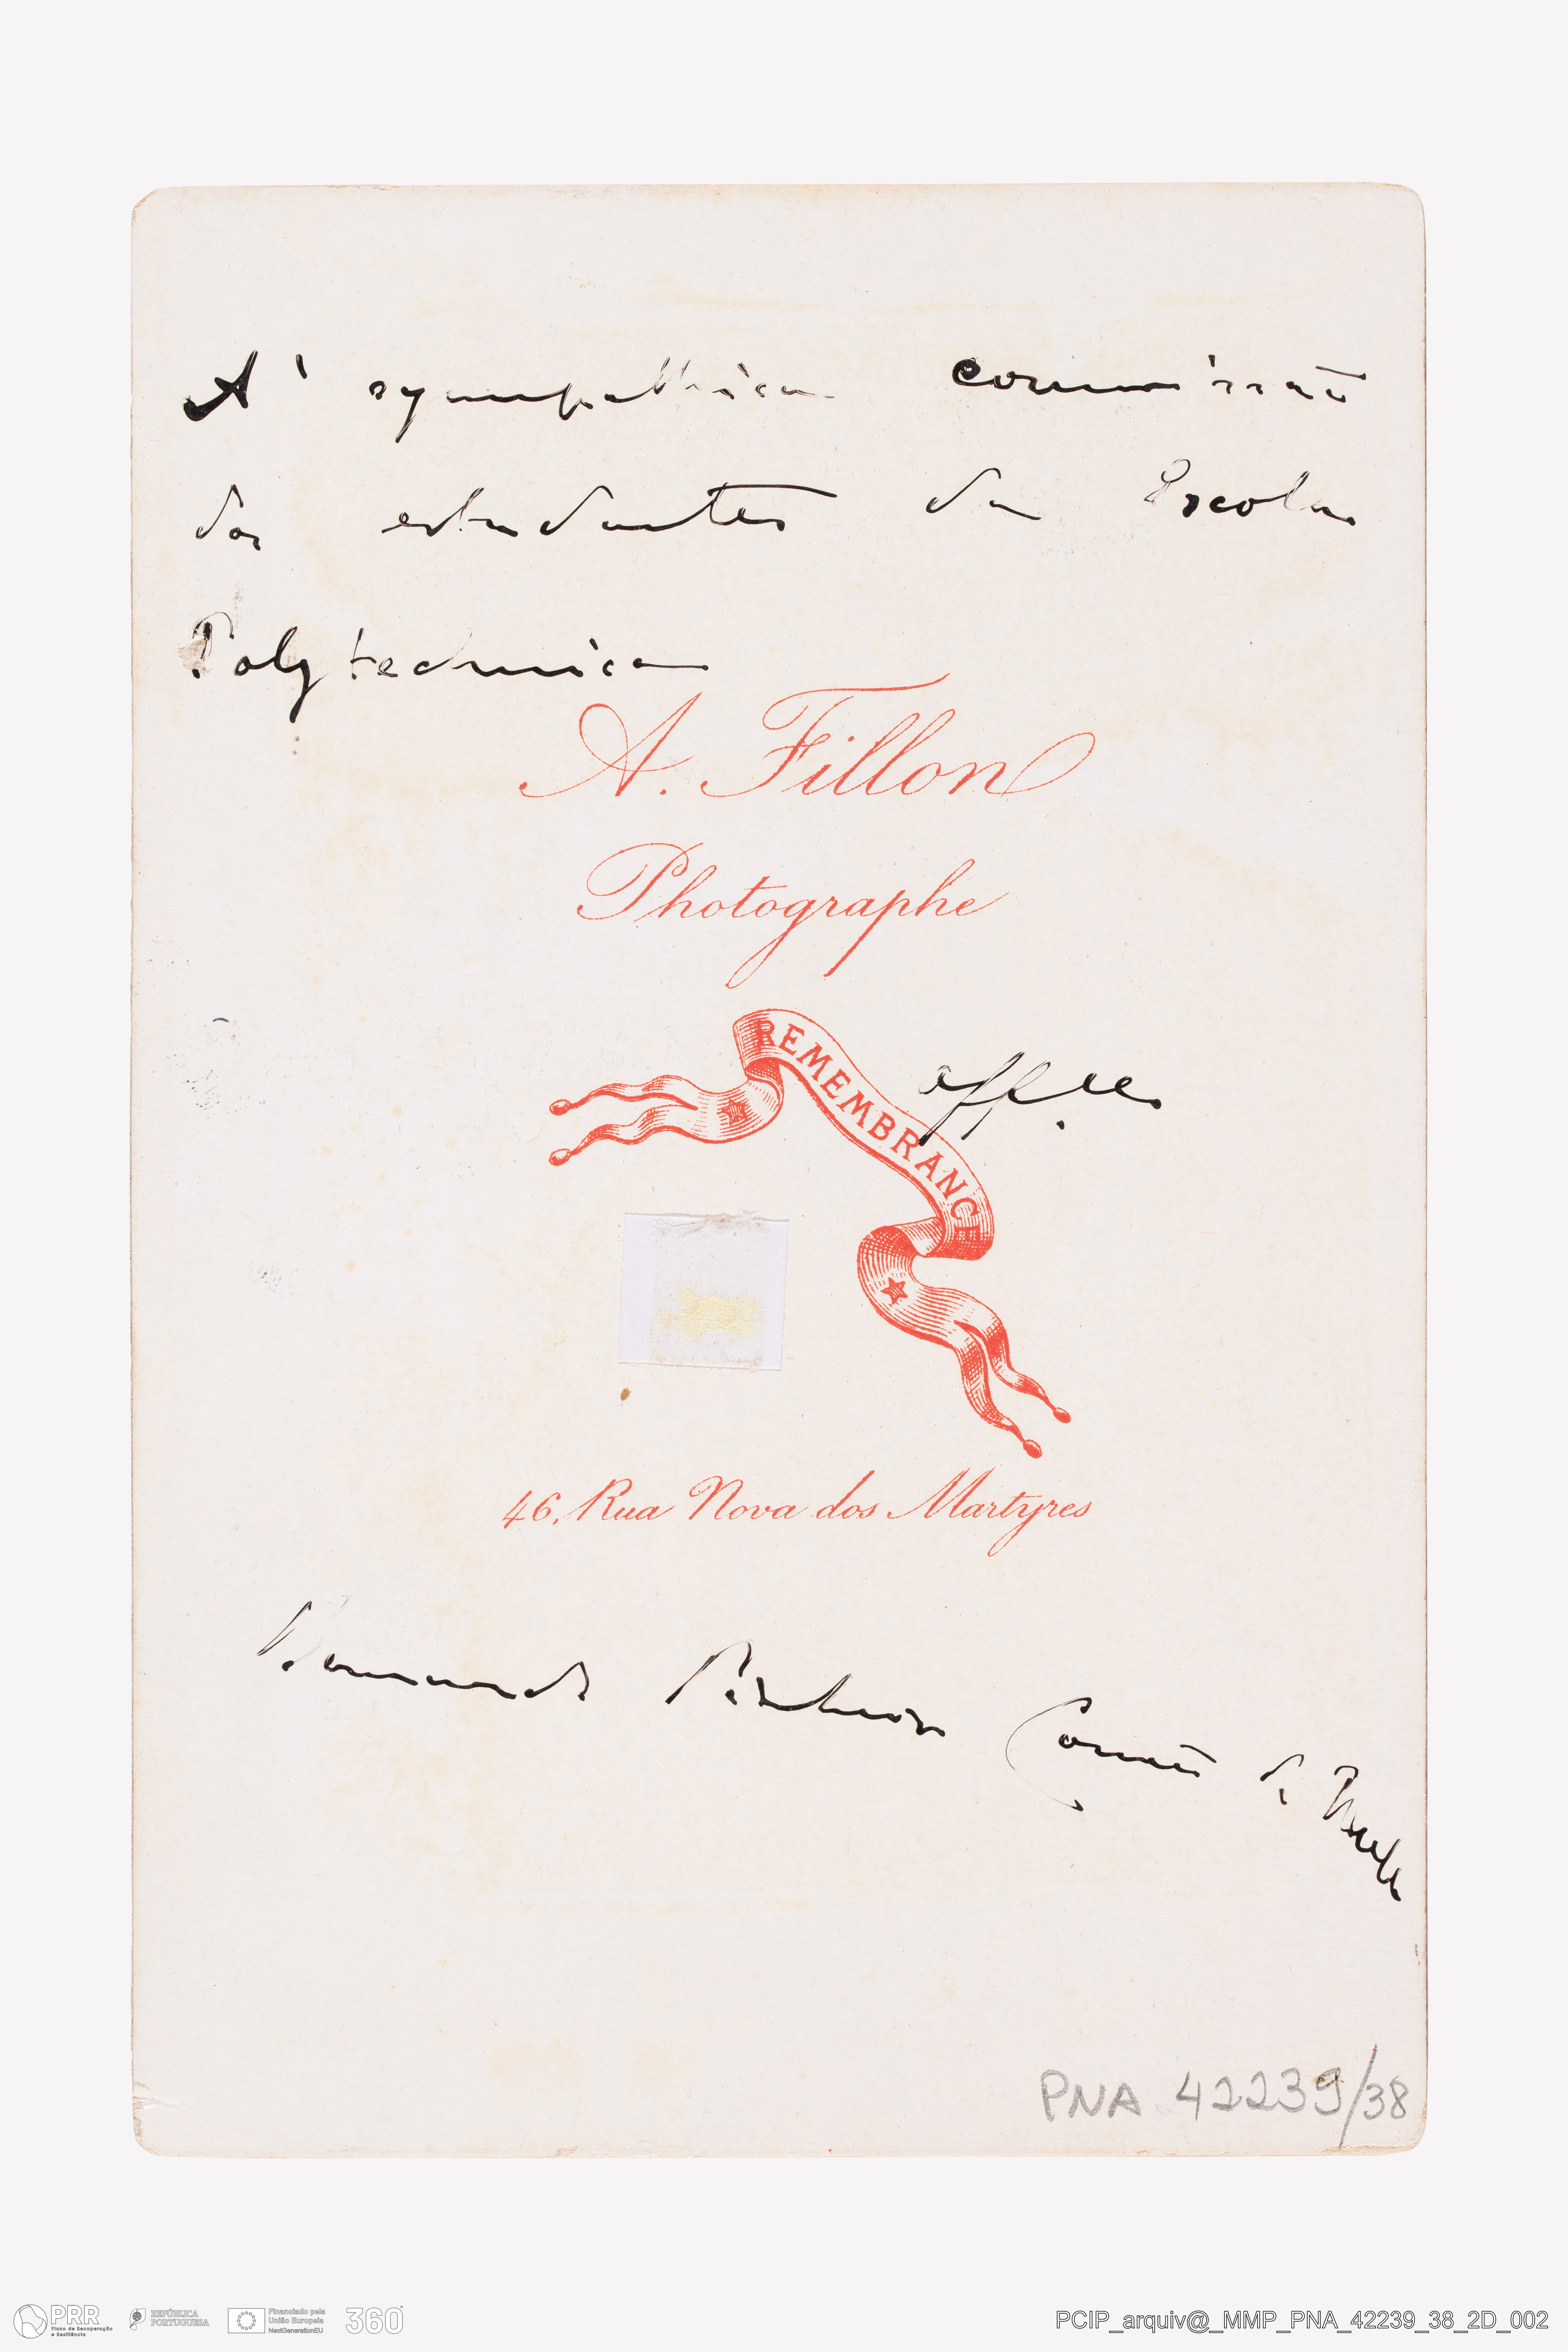 A' sympathica commissão
dos estudantes da Escola
Polytechnica
A. Fillon
Photographe
REMEMBRANCE
aff.
46, Rua Nova dos Martyres
Bernardo Pinheiro Corrêa de Mello
PNA 42239/38
PRR
Plano de Recuperação
e Resiliência
REPÚBLICA
PORTUGUESA
Financiado pela
União Europeia
NextGenerationEU
360°
PCIP_arquiv@_MMP_PNA_42239_38_2D_002